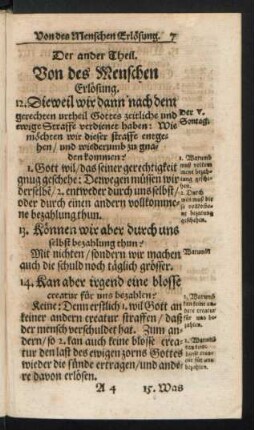 Von des Menschen Erlösung. 7
Der ander Theil.
Von des Menschen
Erlösung.
12. Dieweil wir dann nach dem
gerechten urtheil Gottes zeitliche und
ewige Straffe verdienet haben: Wie
möchten wir dieser straffe entge-
hen / und wiederumb zu gna-
den kommen?
Der V.
Sontag.
1. Gott wil / das seiner gerechtigkeit
gnug geschehe: Deßwegen müssen wir
derselbē / 2. entweder durch uns selbst /
oder durch einen andern vollkomme-
ne bezahlung thun.
1. Warumb
2. Durch
13. Können wir aber durch uns
selbst bezahlung thun?
Mit nichten / sondern wir machen
auch die schuld noch täglich grösser.
Warumb
14. Kan aber irgend eine blosse
creatur für uns bezahlen?
Keine: Denn erstlich 1. wil Gott an
keiner andern creatur straffen / daß
der mensch verschuldet hat. Zum an-
dern / so 2. kan auch keine blosse crea-
tur den last des ewigen zorns Gottes
wieder die sünde ertragen / und ande
re davon erlösen.
1. Warumb
2. Warumb
A 4 15. Was